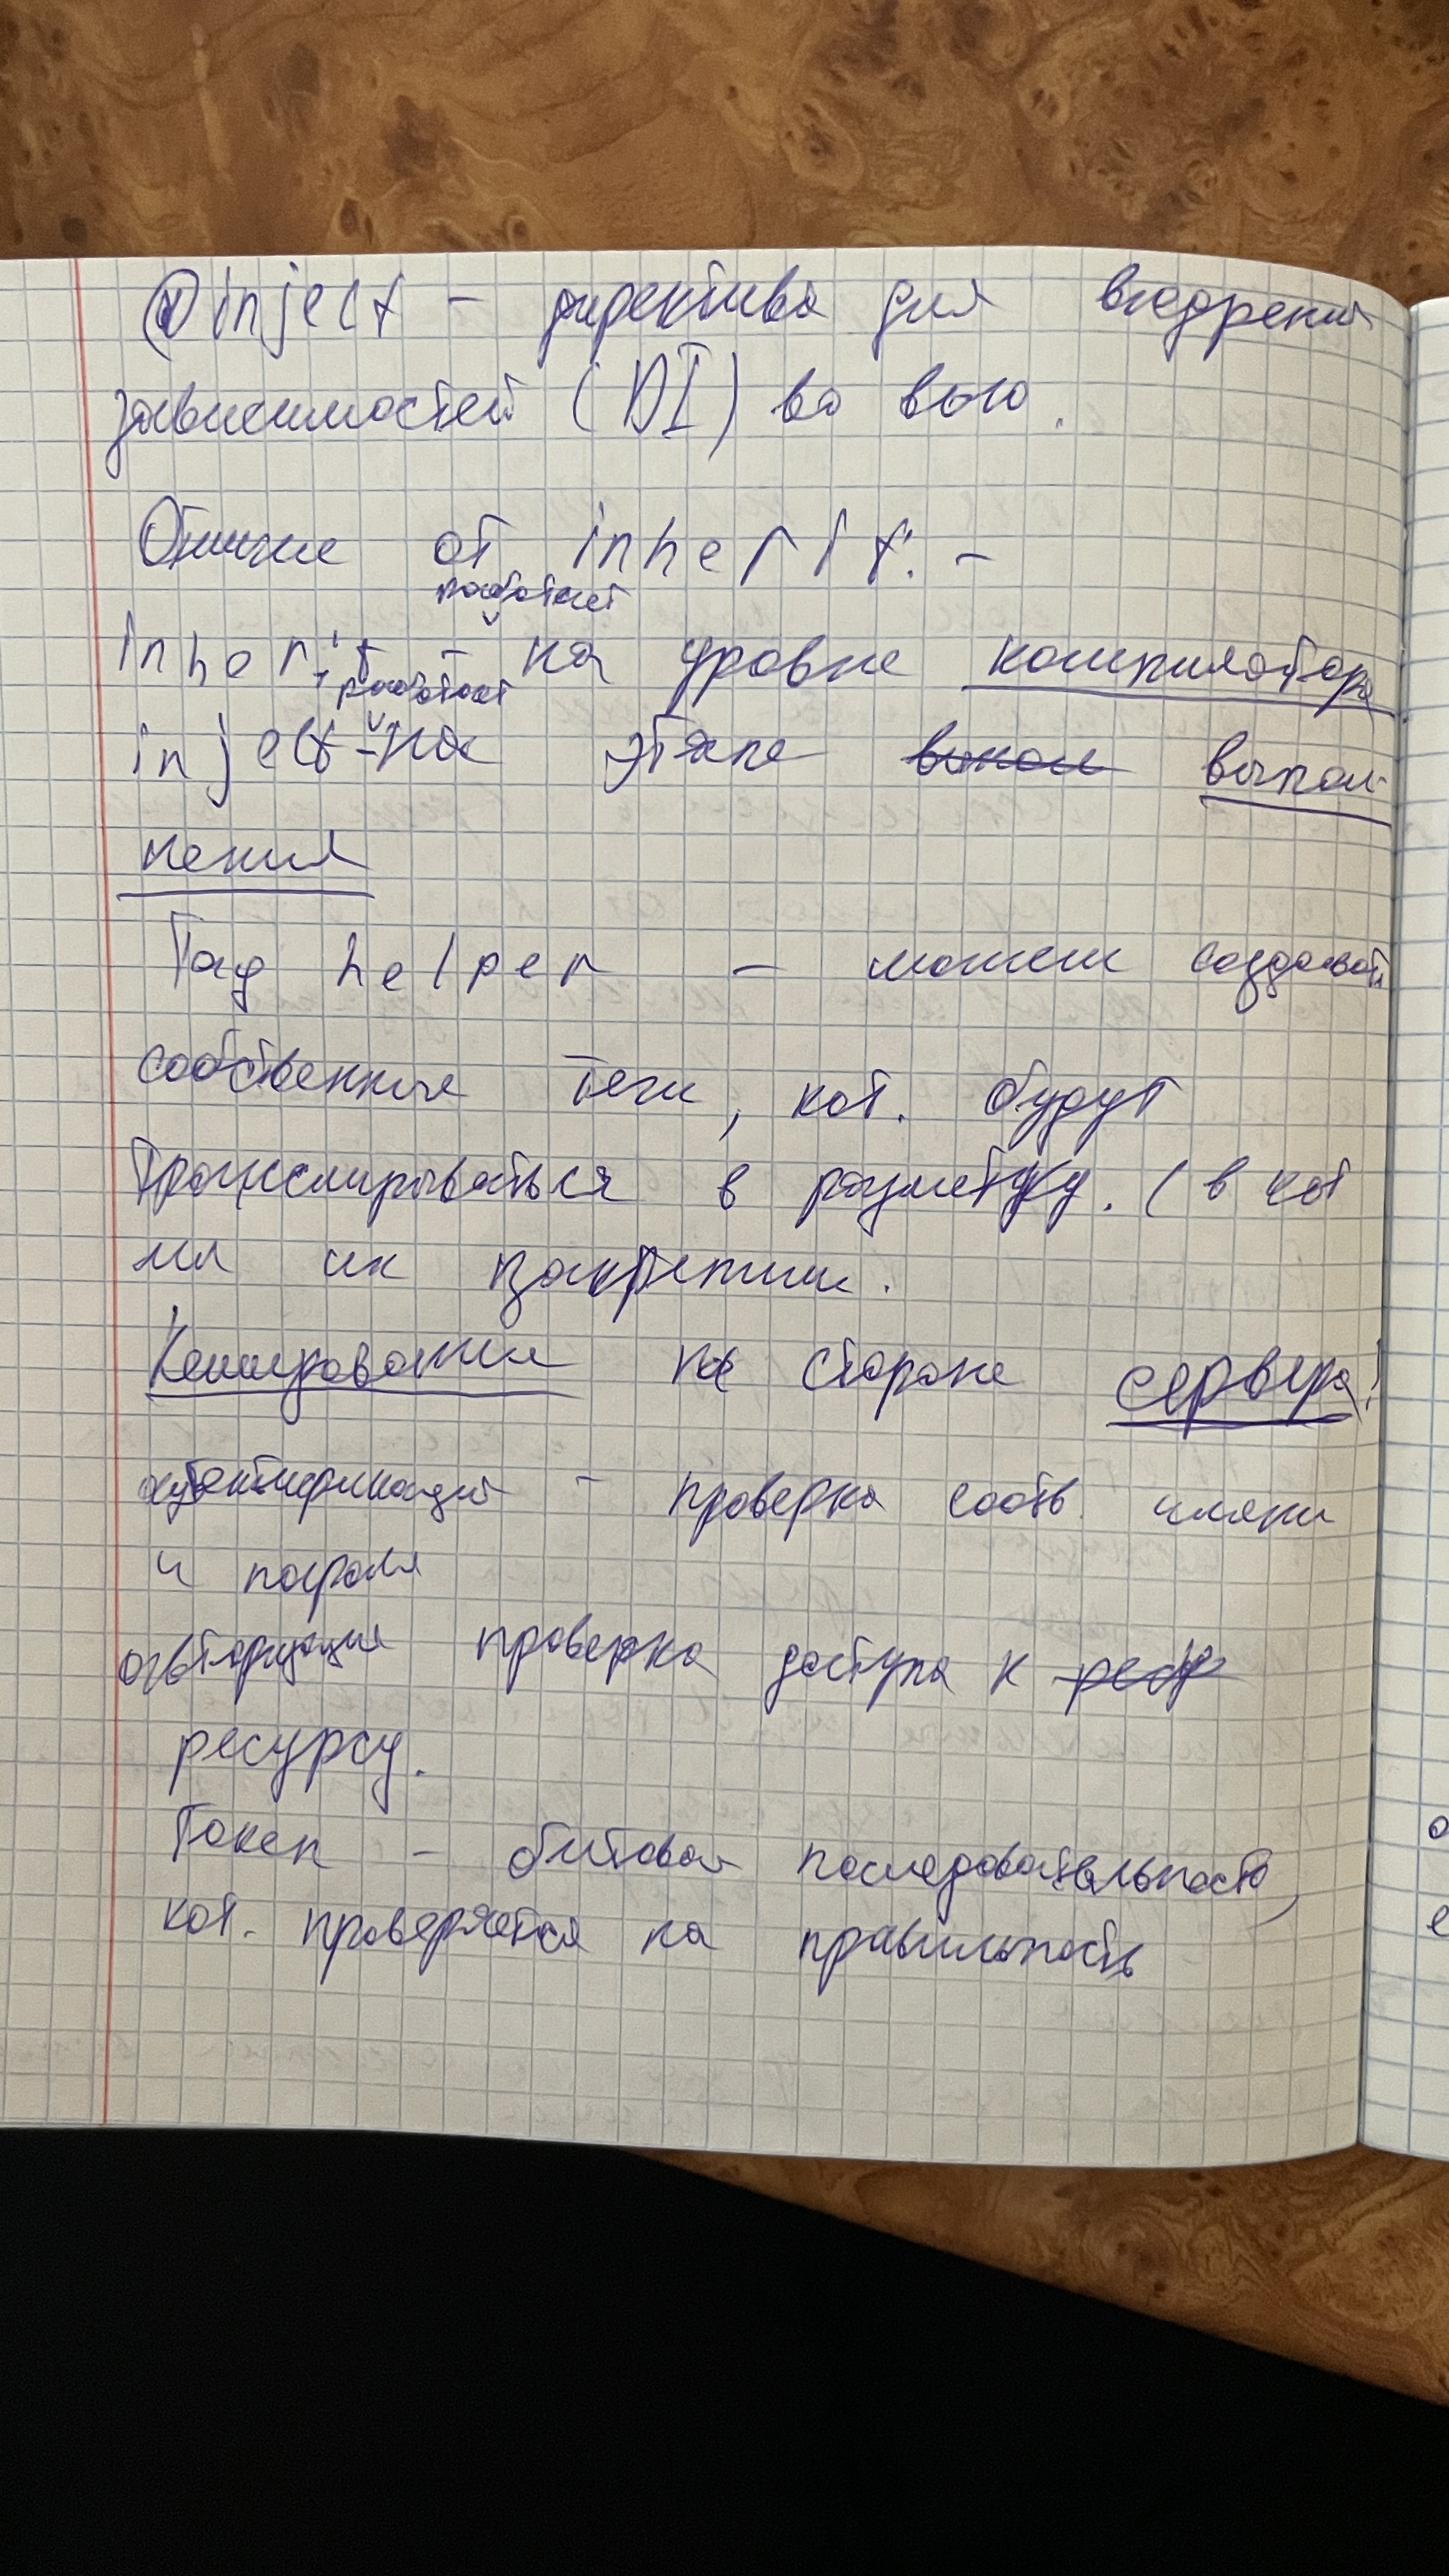 @inject - директива для внедрения
зависимостей (DI) во вью.
Отличие от inherit: -
работает
inherit - на уровне компилятора
работает
inject - на этапе выпол-
нения
Tag helper - можем создавать
собственные теги, кот. будут
транслироваться в разметку. (в кот
мы их закрепим.
Кеширование на стороне сервера!
аутентификация - проверка соотв. имени
и пароля
авторизация проверка доступа к
ресурсу.
Токен - битовая последовательность,
кот. проверяется на правильность
о
е